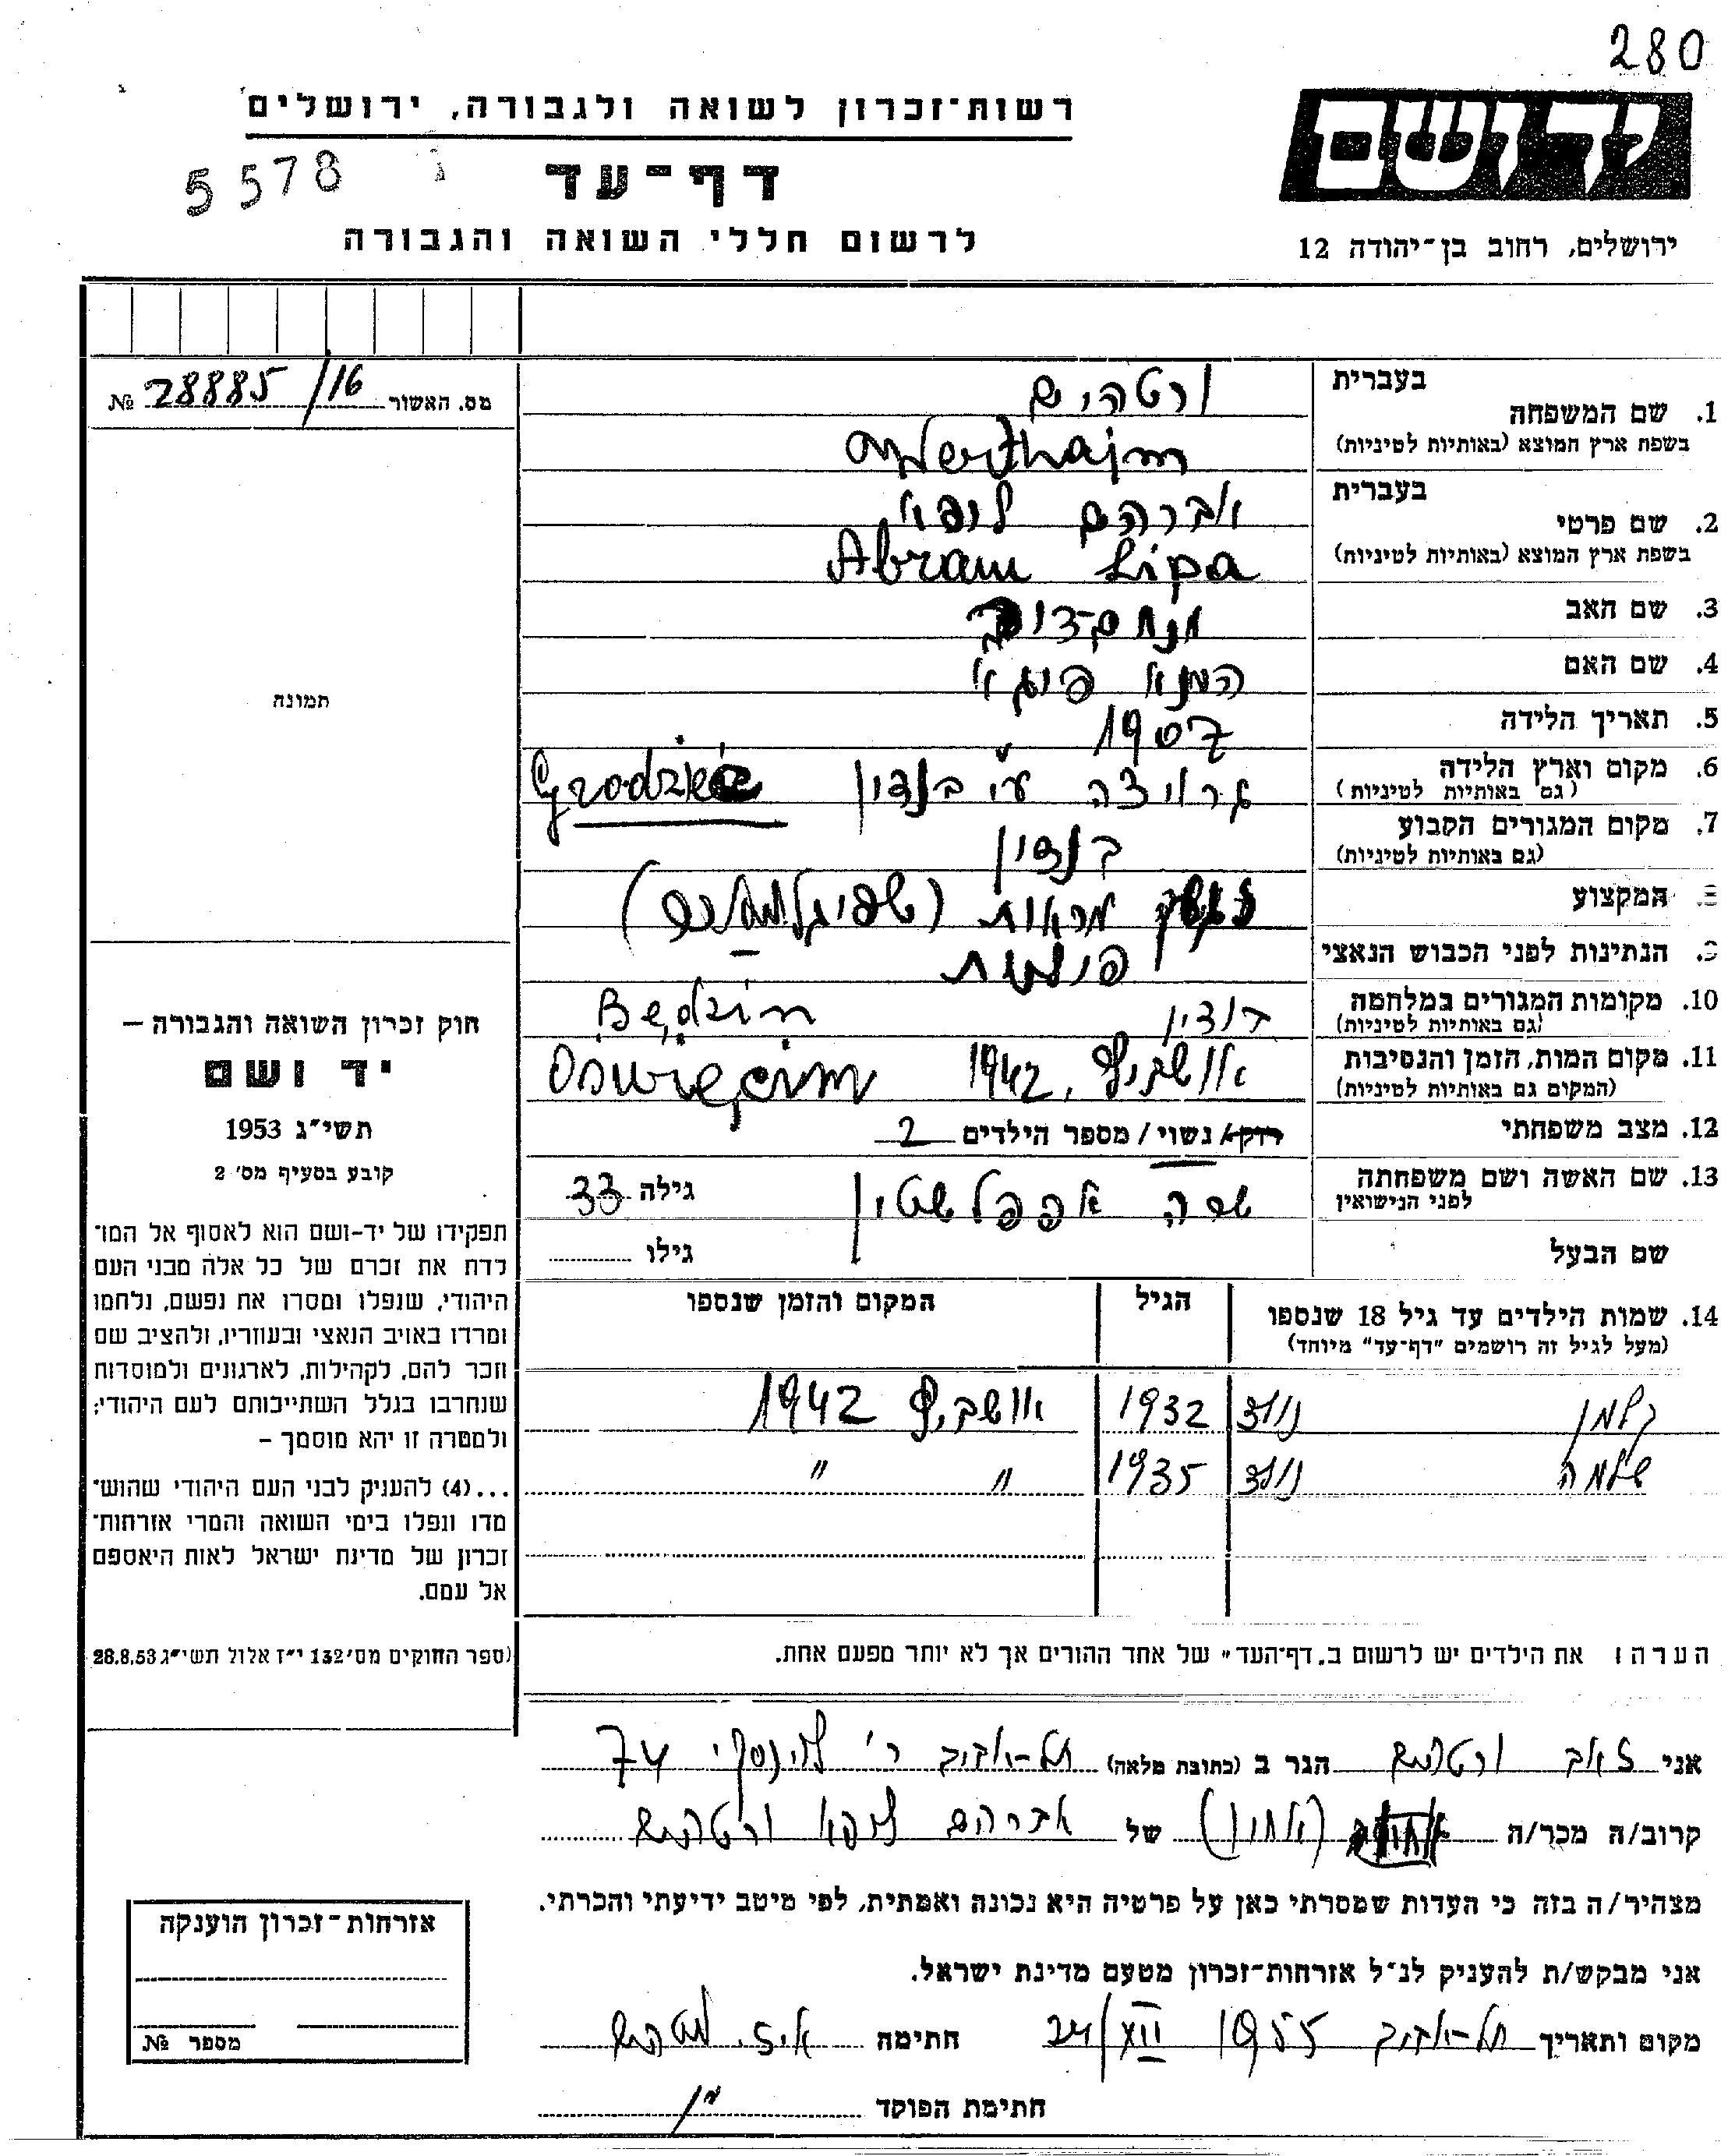 280
רשות־זכרון לשואה ולגבורה, ירושלים
ידושם
5578
דף־עד
לרשום חללי השואה והגבורה
ירושלים, רחוב בן־יהודה 12
מס. האשור 28885/16 №
1. שם המשפחה בעברית ורטהים
בשפת ארץ המוצא (באותיות לטיניות) Werthajm
2. שם פרטי בעברית אברהם ליפא
בשפת ארץ המוצא (באותיות לטיניות) Abram Lipa
3. שם האב מנחם־דוב
4. שם האם
5. תאריך הלידה 1907
6. מקום וארץ הלידה ע״י בנדין
(גם באותיות לטיניות)
7. מקום המגורים הקבוע בנדין
(גם באותיות לטיניות)
8. המקצוע מראות
9. הנתינות לפני הכבוש הנאצי פולנית
10. מקומות המגורים במלחמה בנדין Będzin
(גם באותיות לטיניות)
11. מקום המות, הזמן והנסיבות אושביץ, 1942 Oświęcim
(המקום גם באותיות לטיניות)
12. מצב משפחתי רוק/ נשוי / מספר הילדים 2
13. שם האשה ושם משפחתה שרה אפפלשטין גילה 33
לפני הנישואין
שם הבעל גילו
14. שמות הילדים עד גיל 18 שנספו הגיל המקום והזמן שנספו
(מעל לגיל זה רושמים "דף־עד" מיוחד)
קלמן נולד 1932 אושביץ 1942
שלמה נולד 1935 " "
תמונה
חוק זכרון השואה והגבורה –
יד ושם
תשי״ג 1953
קובע בסעיף מס׳ 2
תפקידו של יד-ושם הוא לאסוף אל המו־
לדת את זכרם של כל אלה מבני העם
היהודי, שנפלו ומסרו את נפשם, נלחמו
ומרדו באויב הנאצי ובעוזריו, ולהציב שם
וזכר להם, לקהילות, לארגונים ולמוסדות
שנחרבו בגלל השתייכותם לעם היהודי;
ולמטרה זו יהא מוסמך –
...(4) להעניק לבני העם היהודי שהוש־
מדו ונפלו בימי השואה והמרי אזרחות־
זכרון של מדינת ישראל לאות היאספם
אל עמם.
(ספר החוקים מס׳ 132 י״ז אלול תשי״ג 28.8.53
הערה: את הילדים יש לרשום ב„דף־העד" של אחד ההורים אך לא יותר מפעם אחת.
אני זאב ורטהים הגר ב (כתובת מלאה) תל-אביב ר׳ לוינסקי 74
קרוב/ה מכר/ה (אחיו) של אברהם ליפא ורטהים
מצהיר/ה בזה כי העדות שמסרתי כאן על פרטיה היא נכונה ואמתית, לפי מיטב ידיעתי והכרתי.
אני מבקש/ת להעניק לנ״ל אזרחות־זכרון מטעם מדינת ישראל.
מקום ותאריך תל-אביב 24/XII 1955 חתימה
חתימת הפוקד
אזרחות־זכרון הוענקה
מספר №